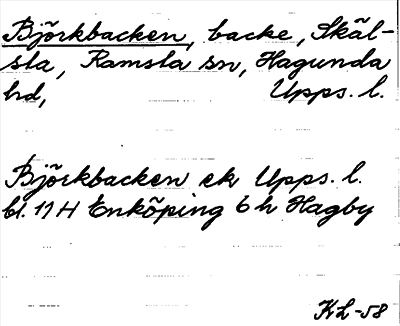 Björkbacken, backe, Skäl-
sta, Ramsta sn, Hagunda
hd, Upps. l.
Björkbacken ek Upps. l.
bl. 11 H Enköping 6 h Hagby
KL-58